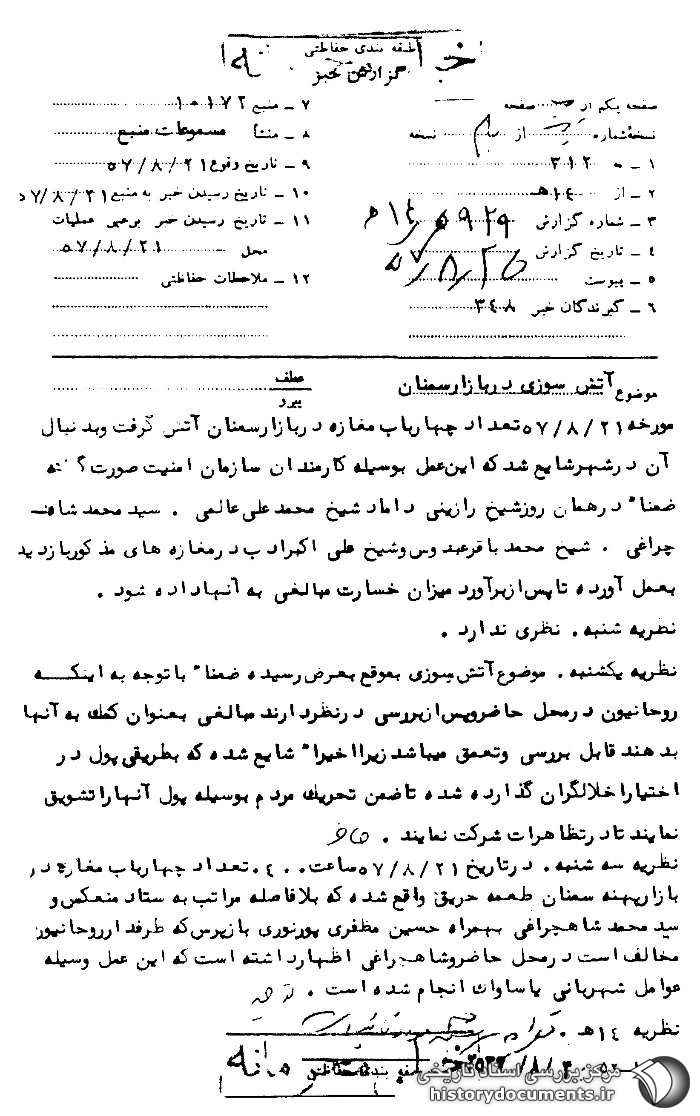 طبقه بندی حفاظتی
گزارش خبر
صفحه یکم از صفحه
نسخه شماره از نسخه
۱ ـ ه ۳۱۲
۲ ـ از ۱۴هـ
۳ ـ شماره گزارش ۵۹۲۹ / ۱۴ ه
۴ ـ تاریخ گزارش
۵ ـ پیوست
۶ ـ گیرندگان خبر ۳۴۸
۷ ـ منبع ۱۰۱۷۲
۸ ـ منشأ مسموعات منبع
۹ ـ تاریخ وقوع ۵۷/۸/۲۱
۱۰ ـ تاریخ رسیدن خبر به منبع ۵۷/۸/۲۱
۱۱ ـ تاریخ رسیدن خبر برهبر عملیات
محل ۵۷/۸/۲۱
۱۲ ـ ملاحظات حفاظتی
موضوع آتش سوزی دربازارسمنان
عطف
پیرو
مورخه ۵۷/۸/۲۱ تعداد چهارباب مغازه دربازارسمنان آتش گرفت وبدنبال
آن درشهرشایع شدکه این عمل بوسیله کارمندان سازمان امنیت صورت گرفته
ضمنا" درهمان روزشیخ رازینی داماد شیخ محمدعلی عالمی . سیدمحمدشاهـ
چراغی . شیخ محمدباقرعبدوس وشیخ علی اکبرادب درمغازه های مذکوربازدید
بعمل آورده تاپس ازبرآورد میزان خسارت مبالغی به آنهاداده شود .
نظریه شنبه . نظری ندارد .
نظریه یکشنبه . موضوع آتش سوزی بموقع بعرض رسیده ضمنا" باتوجه به اینکـــه
روحانیون درمحل حاضروپس ازبررسی درنظردارند مبالغی بعنوان کمك به آنها
بدهند قابل بررسی وتعمق میباشد زیرااخیرا" شایع شده که بطریقی پول در
اختیاراخلالگران گذارده شده تاضمن تحریك مردم بوسیله پول آنهاراتشویق
نمایند تادرتظاهرات شرکت نمایند .
نظریه سه شنبه . درتاریخ ۵۷/۸/۲۱ ساعت ۰۴۰۰ تعداد چهارباب مغازه در
بازارپهنه سمنان طعمه حریق واقع شده که بلافاصله مراتب به ستاد منعکس و
سیدمحمد شاهچراغی بهمراه حسین مظفری پورنوری بازپرس که طرفدارروحانیون
مخالف است درمحل حاضروشاهچراغی اظهارداشته است که این عمل وسیله
عوامل شهربانی یاساواك انجام شده است .
نظریه ۱۴هـ .
طبقه بندی حفاظتی
مرکز بررسی اسناد تاریخی
historydocuments.ir